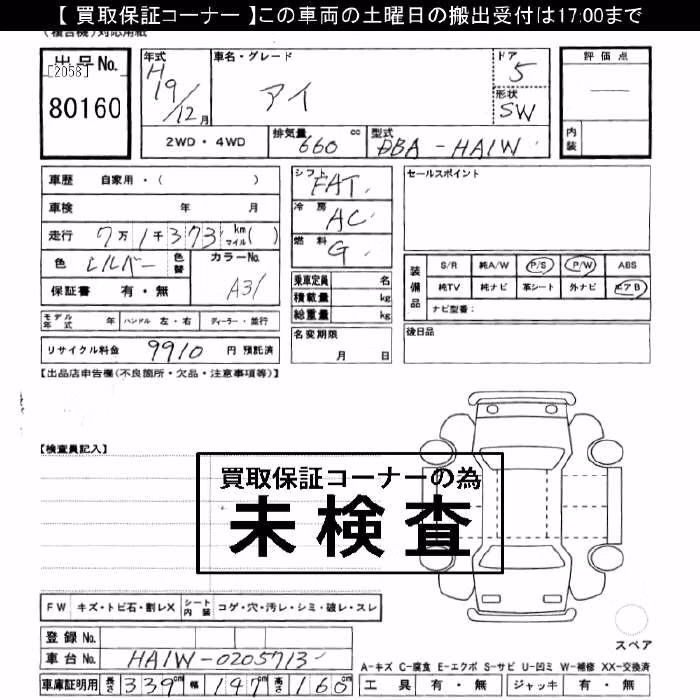 【 買取保証コーナー 】この車両の土曜日の搬出受付は17:00まで
出品No.
[2058]
80160
年式
H
19/12月
車名・グレード
アイ
ドア
5
形状
SW
評価点
内装
2WD・4WD
排気量
660 cc
型式
DBA-HA1W
車歴 自家用・( )
車検 年 月
走行 7万1千373 km マイル( )
色
シルバー
色替
カラーNo.
A31
保証書 有・無
シフト
FAT
冷房
AC
燃料
G
乗車定員 名
積載量 kg
総重量 kg
セールスポイント
装備品
S/R 純A/W P/S P/W ABS
純TV 純ナビ 革シート 外ナビ エアB
ナビ型番:
モデル年式 年 ハンドル 左・右 ディーラー・並行
名変期限
月 日
後日品
リサイクル料金 9910 円 預託済
【出品店申告欄(不良箇所・欠品・注意事項等)】
【検査員記入】
買取保証コーナーの為
未検査
FW キズ・トビ石・割レX シート内装 コゲ・穴・汚レ・シミ・破レ・スレ
登録No.
車台No. HA1W-0205713
スペア
A-キズ C-腐食 E-エクボ S-サビ U-凹ミ W-補修 XX-交換済
車庫証明用 長さ 339cm 幅 147cm 高さ 160cm
工具 有・無 ジャッキ 有・無